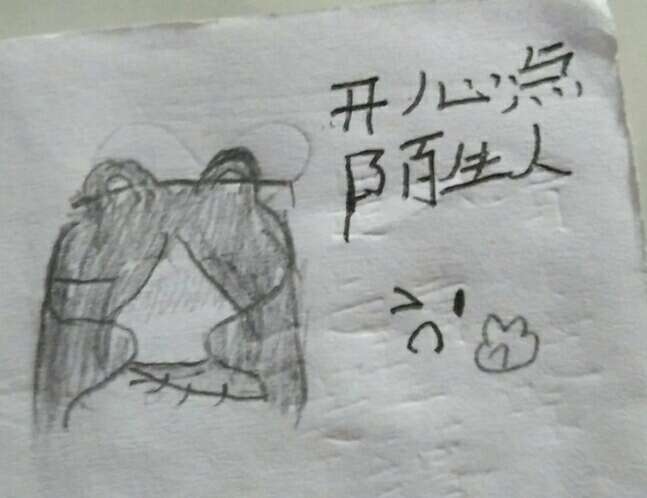 开心点
陌生人